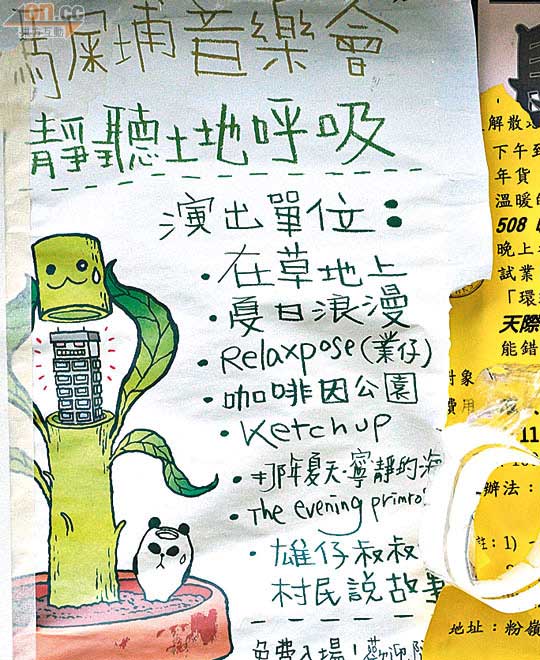 on.cc
東方互動
馬屎埔音樂會
靜聽土地呼吸
演出單位：
• 在草地上
• 夏日浪漫
• Relaxpose (業仔)
• 咖啡因公園
• Ketchup
• 那年夏天·寧靜的海
• The evening primro
• 雄仔叔叔
村民說故事
免費入場！歡迎
解散
下午到
年貨
溫暖
508
晚上
試業
「環
天際
能錯
對象
費用
11
辦法：
註：1)
地址：粉嶺